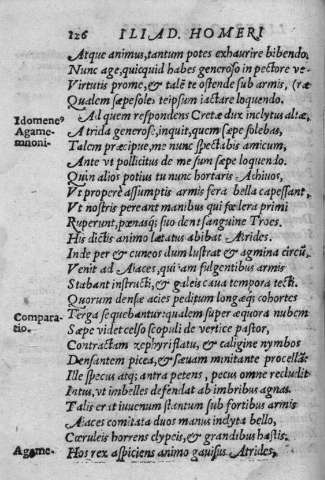 126 ILIAD. HOMERI
Atque animus, tantum potes exhaurire bibendo.
Nunc age, quicquid habes generoso in pectore ve-
Virtutis prome, & talē te ostende sub armis, (ræ
Qualem sæpe soles teipsum iactare loquendo.
Idomeneꝰ
Ad quem respondens Cretæ dux inclytus altæ,
Agame-
Atrida generose, inquit, quem sæpe solebas,
mnoni.
Talem præcipue, me nunc spectabis amicum,
Ante vt pollicitus de me sum sæpe loquendo.
Quin alios potius tu nunc hortaris Achiuos,
Vt propere assumptis armis fera bella capessant,
Vt nostris pereant manibus qui fœdera primi
Ruperunt, pœnasq; suo dent sanguine Troes.
His dictis animo lætatus abibat Atrides.
Inde per & cuneos dum lustrat & agmina circū,
Venit ad Aiaces, qui iam fulgentibus armis
Stabant instructi, & galeis caua tempora tecti.
Quorum densæ acies peditum longæq; cohortes
Compara-
Terga sequebantur: qualem super æquora nubem
tio.
Sæpe videt celso scopuli de vertice pastor,
Contractam zephyri flatu, & caligine nymbos
Densantem picea, & sæuam minitante procellā:
Ille specus atq; antra petens, pecus omne recludit
Intus, vt imbelles defendat ab imbribus agnas.
Talis erat iuuenum stantum sub fortibus armis
Aiaces comitata duos manus inclyta bello,
Cœruleis horrens clypeis, & grandibus hastis.
Agame-
Hos rex aspiciens animo gauisus Atrides,